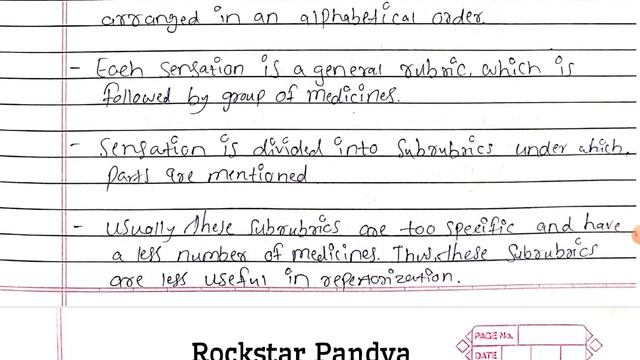 arranged in an alphabetical order.
- Each sensation is a general rubric, which is
followed by group of medicines.
- Sensation is divided into subrubrics under which,
parts are mentioned
- usually these subrubrics are too specific and have
a less number of medicines. Thus, these subrubrics
are less useful in repertorization.
Rockstar Pandya
PAGE No.
DATE